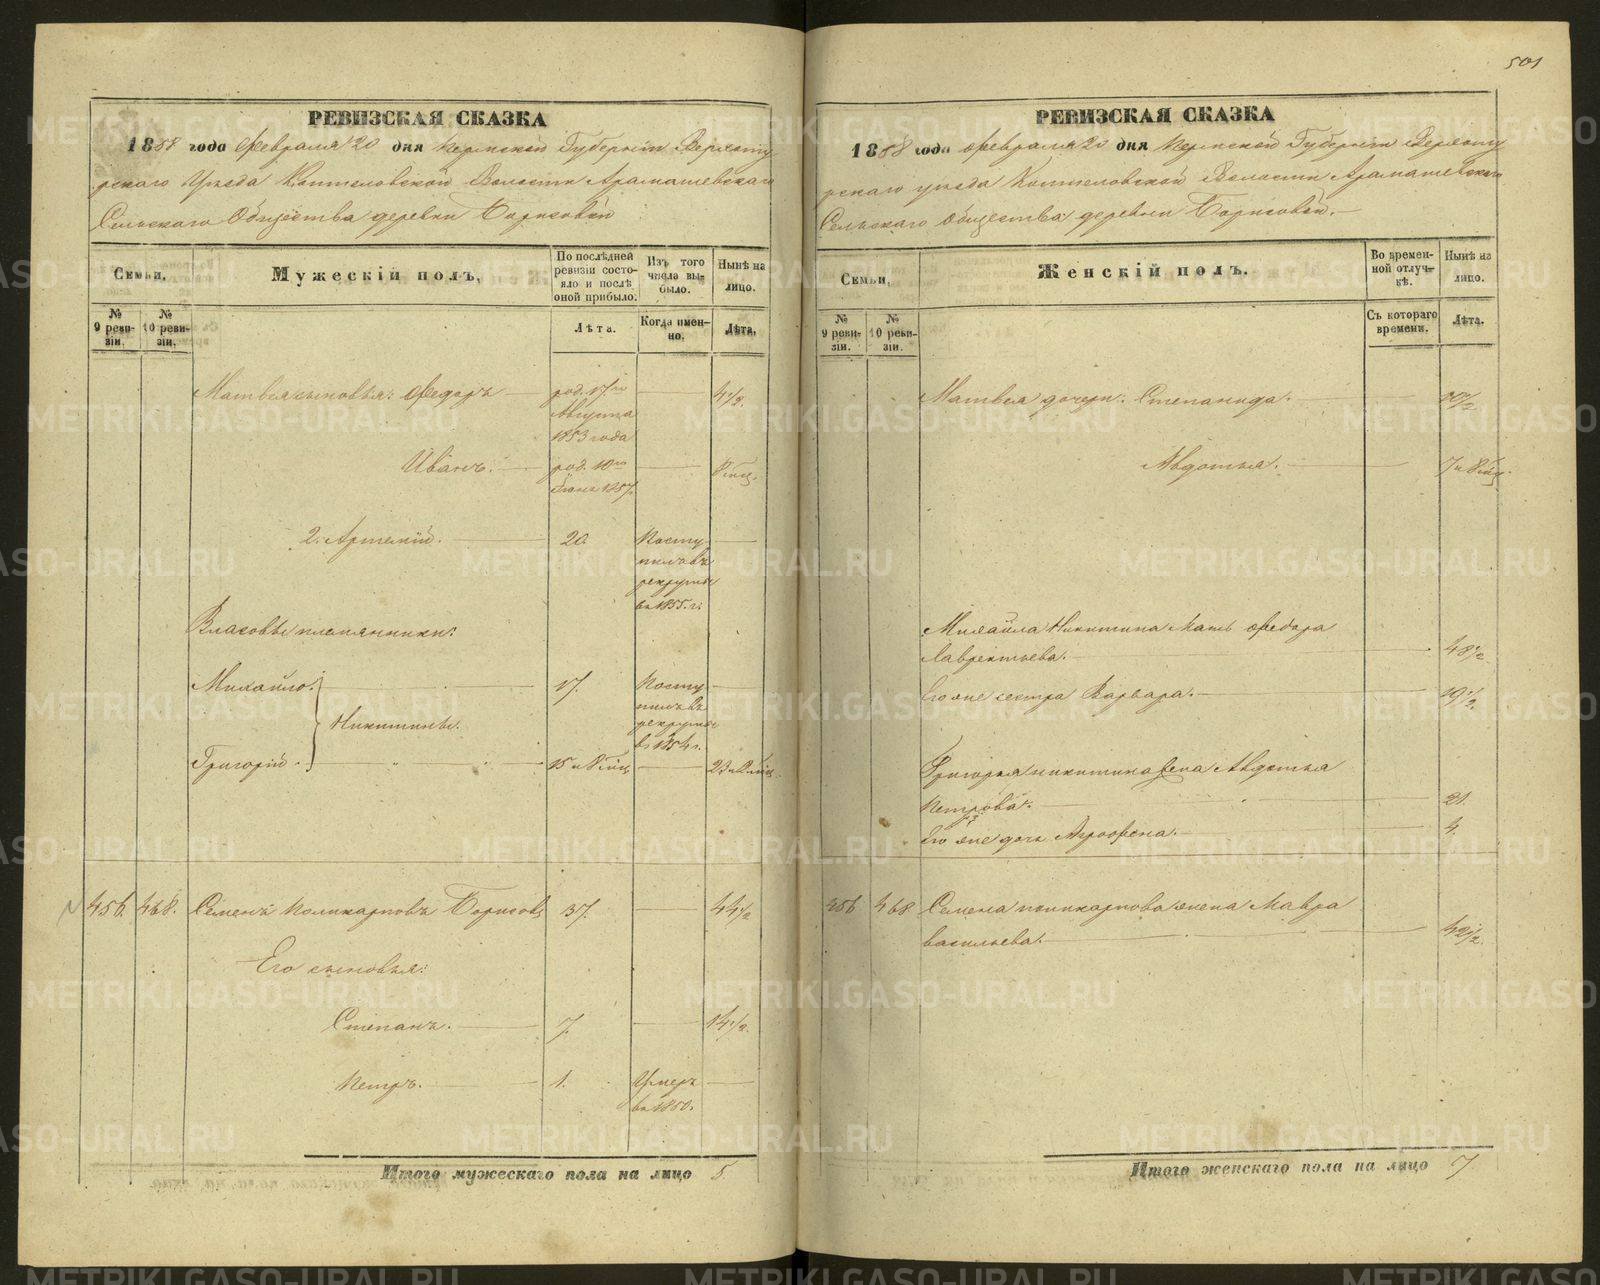 501
РЕВИЗСКАЯ СКАЗКА
1858 года Февраля 20 дня Пермской Губернии Верхоту
рскаго Уезда Коптеловской Волости Арамашевскаго
Сельскаго Общества деревни Борисовой
Семьи.
Мужескій полъ.
По послѣдней ревизіи состояло и послѣ оной прибыло.
Изъ того числа выбыло.
Нынѣ на лицо.
№ 9 ревизіи.
№ 10 ревизіи.
Лѣта.
Когда именно.
Лѣта.
Матвея сыновья: Федоръ род. 17го Августа 1853 года 4 1/2
Иванъ. род. 10го 1857. 8 мѣц.
2. Артемій. 20. Поступилъ въ рекруты въ 1855. г.
Власовы племянники:
Михайло 17. Поступилъ въ рекруты въ 1854 г.
Никитины.
Григорій 15 и 8 мѣц.
456. 468. Семенъ Поликарповъ Борисовъ 37. 44 1/2
Его сыновья:
Степанъ. 7. 14 1/2.
Петръ. 1. Умеръ въ 1850.
Итого мужескаго пола на лицо 5.
РЕВИЗСКАЯ СКАЗКА
1858 года Февраля 20 дня Пермской Губерніи Верхоту
рскаго уезда Коптеловской Волости Арамашевскаго
Сельскаго Общества деревни Борисовой.
Семьи.
Женскій полъ.
Во временной отлучкѣ.
Нынѣ на лицо.
№ 9 ревизіи.
№ 10 ревизіи.
Съ котораго времени.
Лѣта.
Матвея дочери: Степанида.
Авдотья. 7 и 8 мѣц.
Михайла Никитина мать Федора
Лаврентьева. 48 1/2
Его же сестра Варвара. 19 1/2.
Григорья Никитина жена Авдотья
Петрова. 21.
Его же дочь Агрофена. 4.
456 468 Семена Поликарпова жена Мавра
Васильева. 42 1/2.
Итого женскаго пола на лицо 7
METRIKI.GASO-URAL.RU